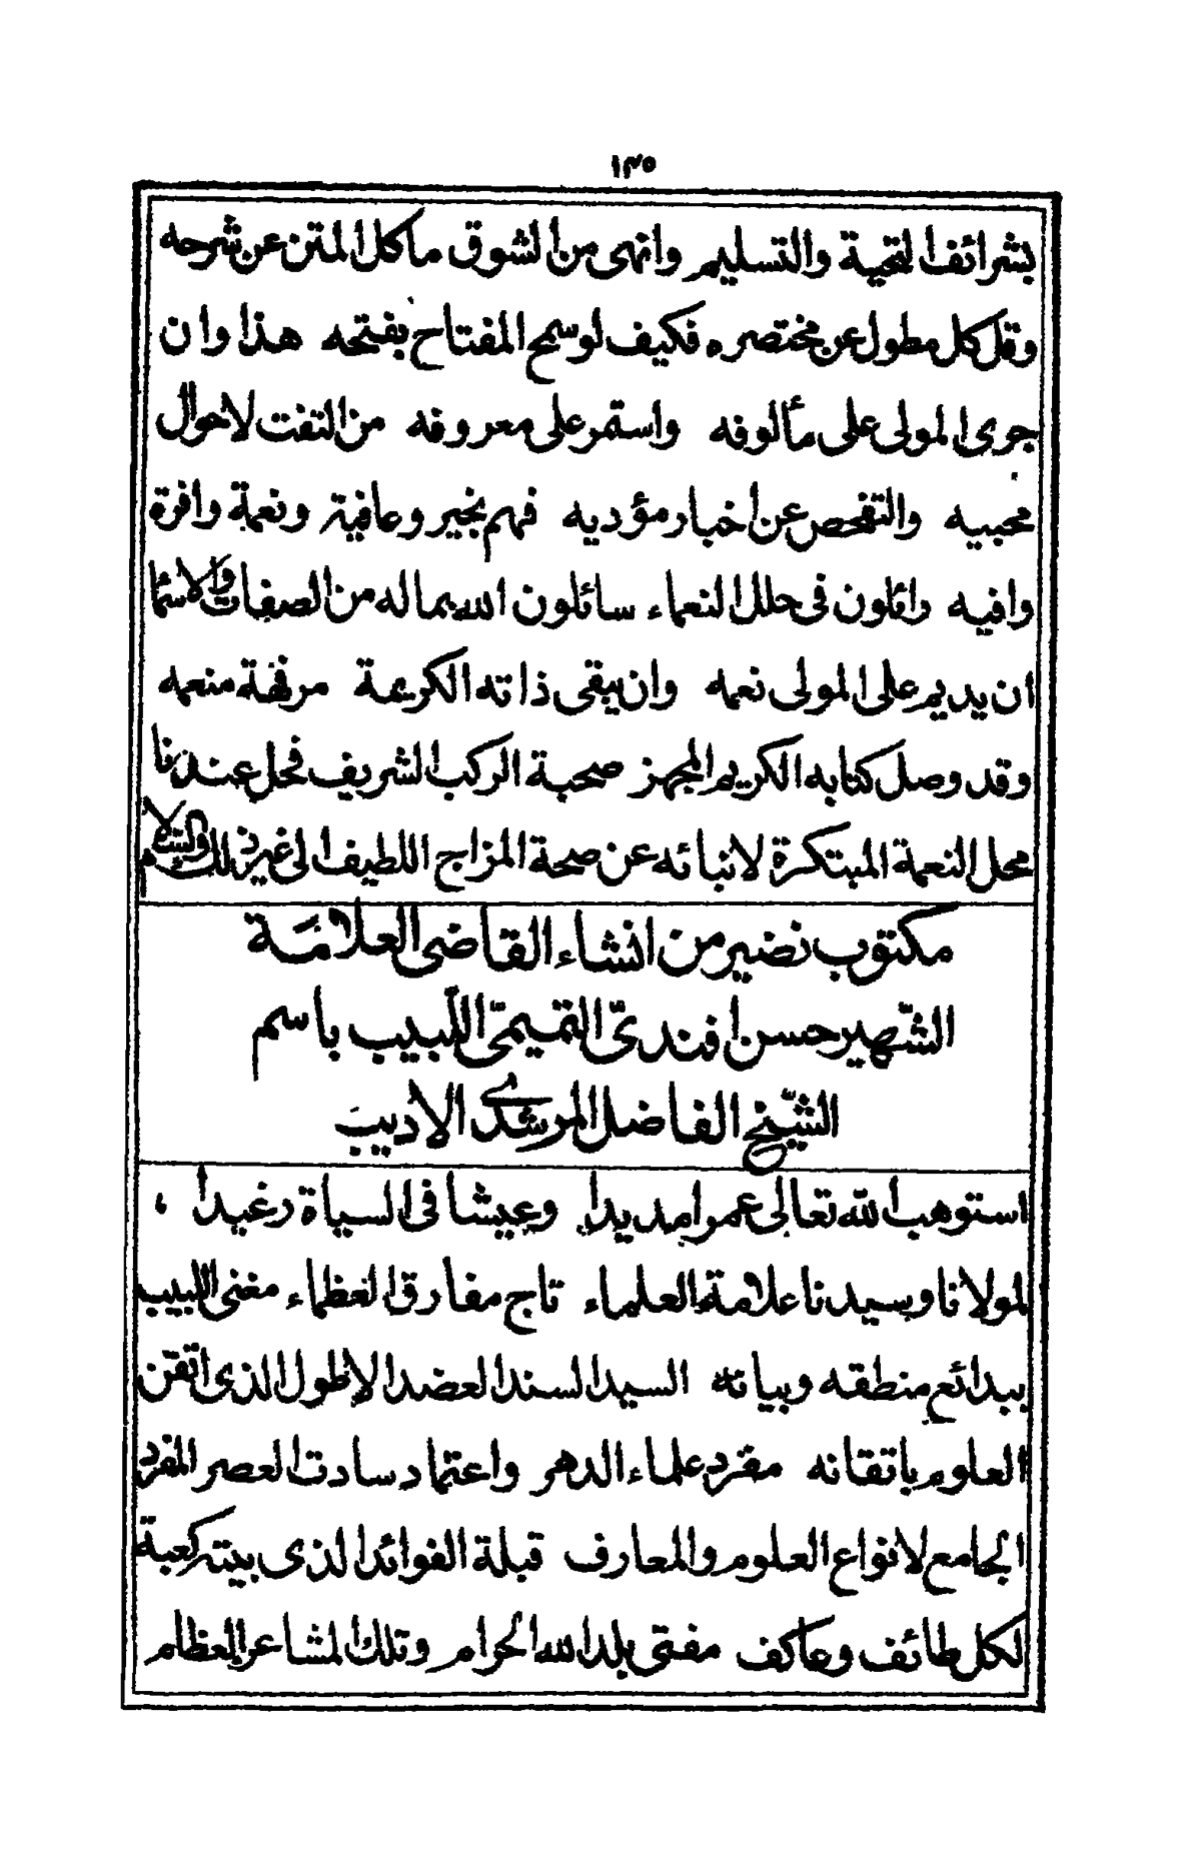 ١٣٥
بشرائف التحية والتسليم وانهى من الشوق ما كل المتن عن شرحه
وقل كل مطول عن مختصره فكيف لو سمح المفتاح بفتحه هذا وان
جرى المولى على مألوفه واستمر على معروفه من التفت لاحوال
محبيه والتفحص عن أخبار مؤديه فهم بخير وعافية ونعمة وافرة
وافيه رافلون فى حلل النعماء سائلون الله بماله من الصفات والاسما
ان يديم على المولى نعمه وان يبقى ذاته الكريمة مرفهة منعمه
وقد وصل كتابه الكريم المجهز صحبة الركب الشريف فحل عندنا
محل النعمة المبتكرة لانبائه عن صحة المزاج اللطيف الى غير ذلك والسلام
مكتوب نضير من انشاء القاضى العلامة
الشّهير حسن افندىّ التميمىّ اللّبيب باسم
الشّيخ الفاضل المرشدى الاديب
استوهب الله تعالى عمرا مديدا وعيشا فى السياة رغيدا ،
لمولانا وسيدنا علامة العلماء تاج مفارق العظماء مغنى اللبيب
ببدائع منطقه وبيانه السيد السند العضد الاطول الذى اتقن
العلوم باتقانه مفرد علماء الدهر واعتماد سادت العصر المفرد
الجامع لانواع العلوم والمعارف قبلة الفوائد الذى بيته كعبة
لكل طائف وعاكف مفتى بلد الله الحرام وتلك المشاعر العظام